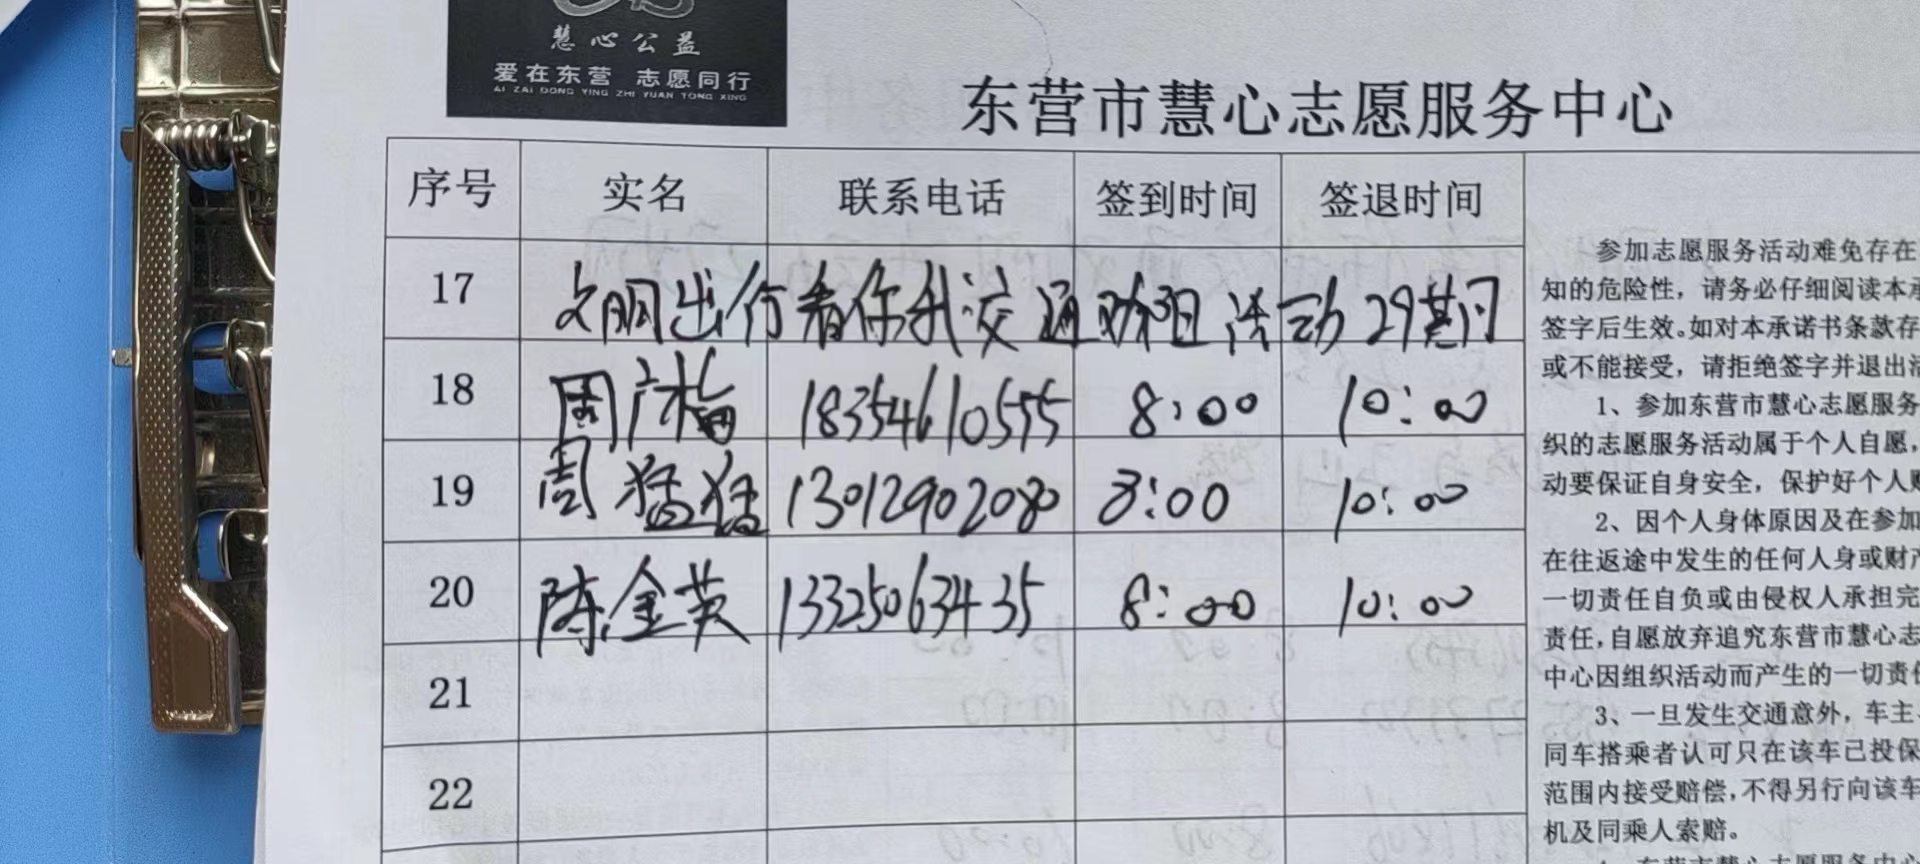 慧心公益
爱在东营 志愿同行
AI ZAI DONG YING ZHI YUAN TONG XING
东营市慧心志愿服务中心
序号 实名 联系电话 签到时间 签退时间
17 文明出行看你我交通劝阻活动29期
18 周广梅 18354610555 8:00 10:00
19 周猛猛 13012902080 8:00 10:00
20 陈金英 13325063435 8:00 10:00
21
22
参加志愿服务活动难免存在
知的危险性，请务必仔细阅读本承
签字后生效。如对本承诺书条款存
或不能接受，请拒绝签字并退出活
1、参加东营市慧心志愿服务
织的志愿服务活动属于个人自愿，
动要保证自身安全，保护好个人财
2、因个人身体原因及在参加
在往返途中发生的任何人身或财产
一切责任自负或由侵权人承担完
责任，自愿放弃追究东营市慧心志
中心因组织活动而产生的一切责任
3、一旦发生交通意外，车主、
同车搭乘者认可只在该车已投保
范围内接受赔偿，不得另行向该车
机及同乘人索赔。